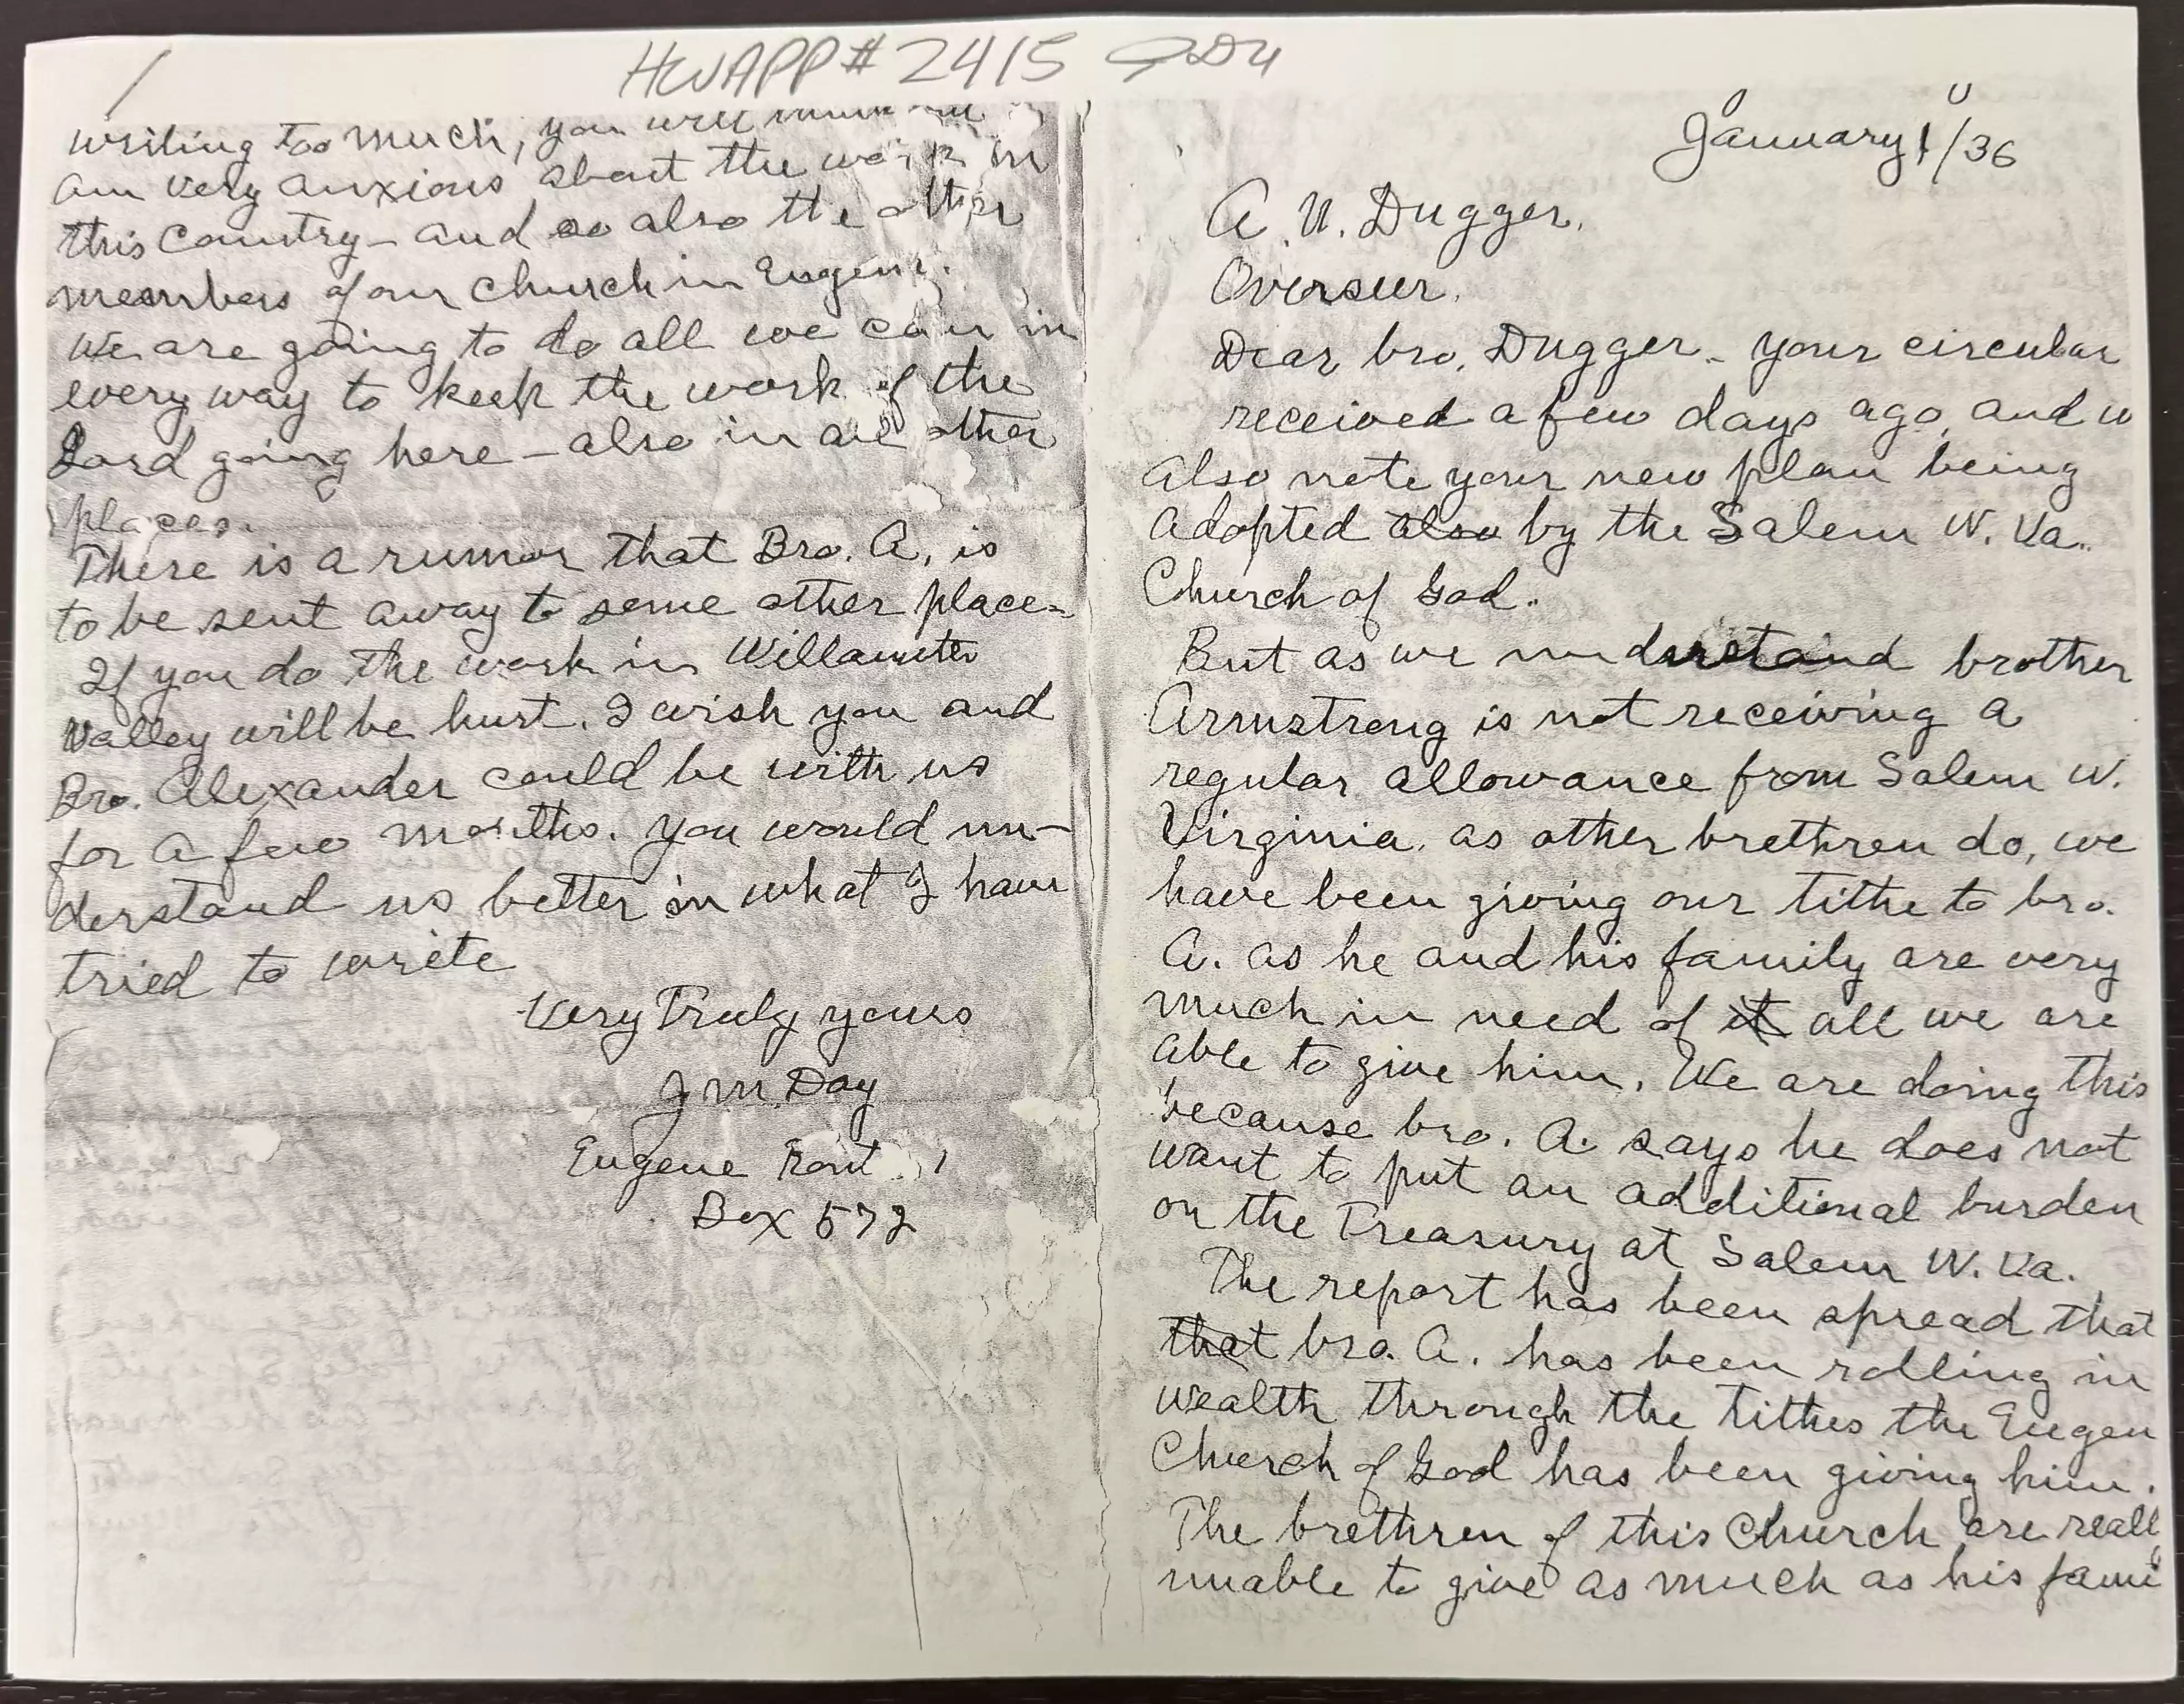 HWAPP# 2415
January 1/36
A. N. Dugger.
Overseer.
Dear bro. Dugger - your circular
received a few days ago, and w
also note your new plan being
adopted also by the Salem W. Va..
Church of God.
But as we understand brother
Armstrong is not receiving a
regular allowance from Salem W.
Virginia. as other brethren do, we
have been giving our tithe to bro.
A. as he and his family are very
much in need of it all we are
able to give him. We are doing this
because bro. A. says he does not
want to put an additional burden
on the Treasury at Salem W. Va.
The report has been spread that
that bro. A. has been rolling in
wealth through the tithes the Eugen
Church of God has been giving him.
The brethren of this Church are reall
unable to give as much as his fami
writing too much, you will
am very anxious about the work in
this Country - and so also the other
members of our church in Eugene.
We are going to do all we can in
every way to keep the work of the
Lord going here - also in all other
places.
There is a rumor that Bro. A. is
to be sent away to some other place.
If you do the work in Willamette
Valley will be hurt. I wish you and
Bro. Alexander could be with us
for a few months. you would un-
derstand us better in what I have
tried to write
Very Truly yours
J M. Day
Eugene Rout 1
Box 572